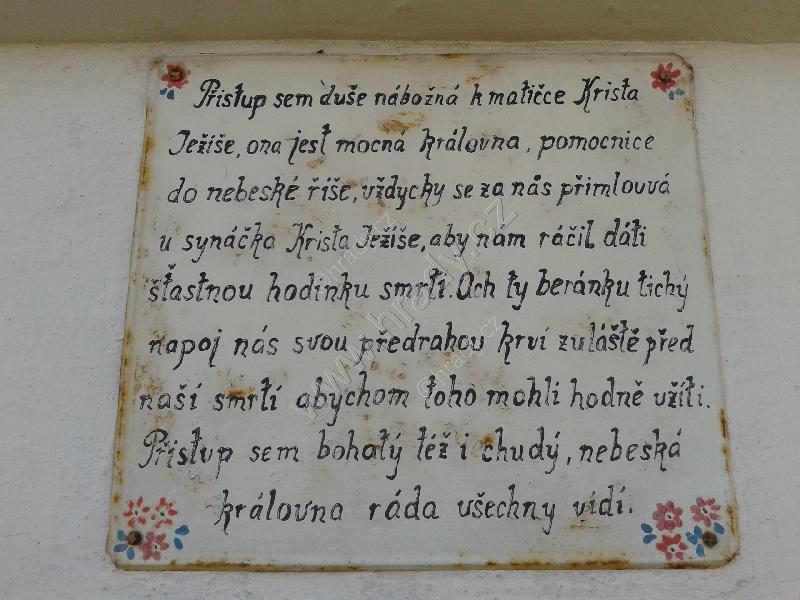 Přistup sem duše nábožná k matičce Krista
Ježíše, ona jest mocná královna, pomocnice
do nebeské říše, vždycky se za nás přimlouvá
u synáčka Krista Ježíše, aby nám ráčil dáti
šťastnou hodinku smrti. Och ty beránku tichý
napoj nás svou předrahou krví zuláště před
naší smrtí abychom toho mohli hodně vžíti.
Přistup sem bohatý též i chudý, nebeská
královna ráda všechny vidí.
www.hrady.cz